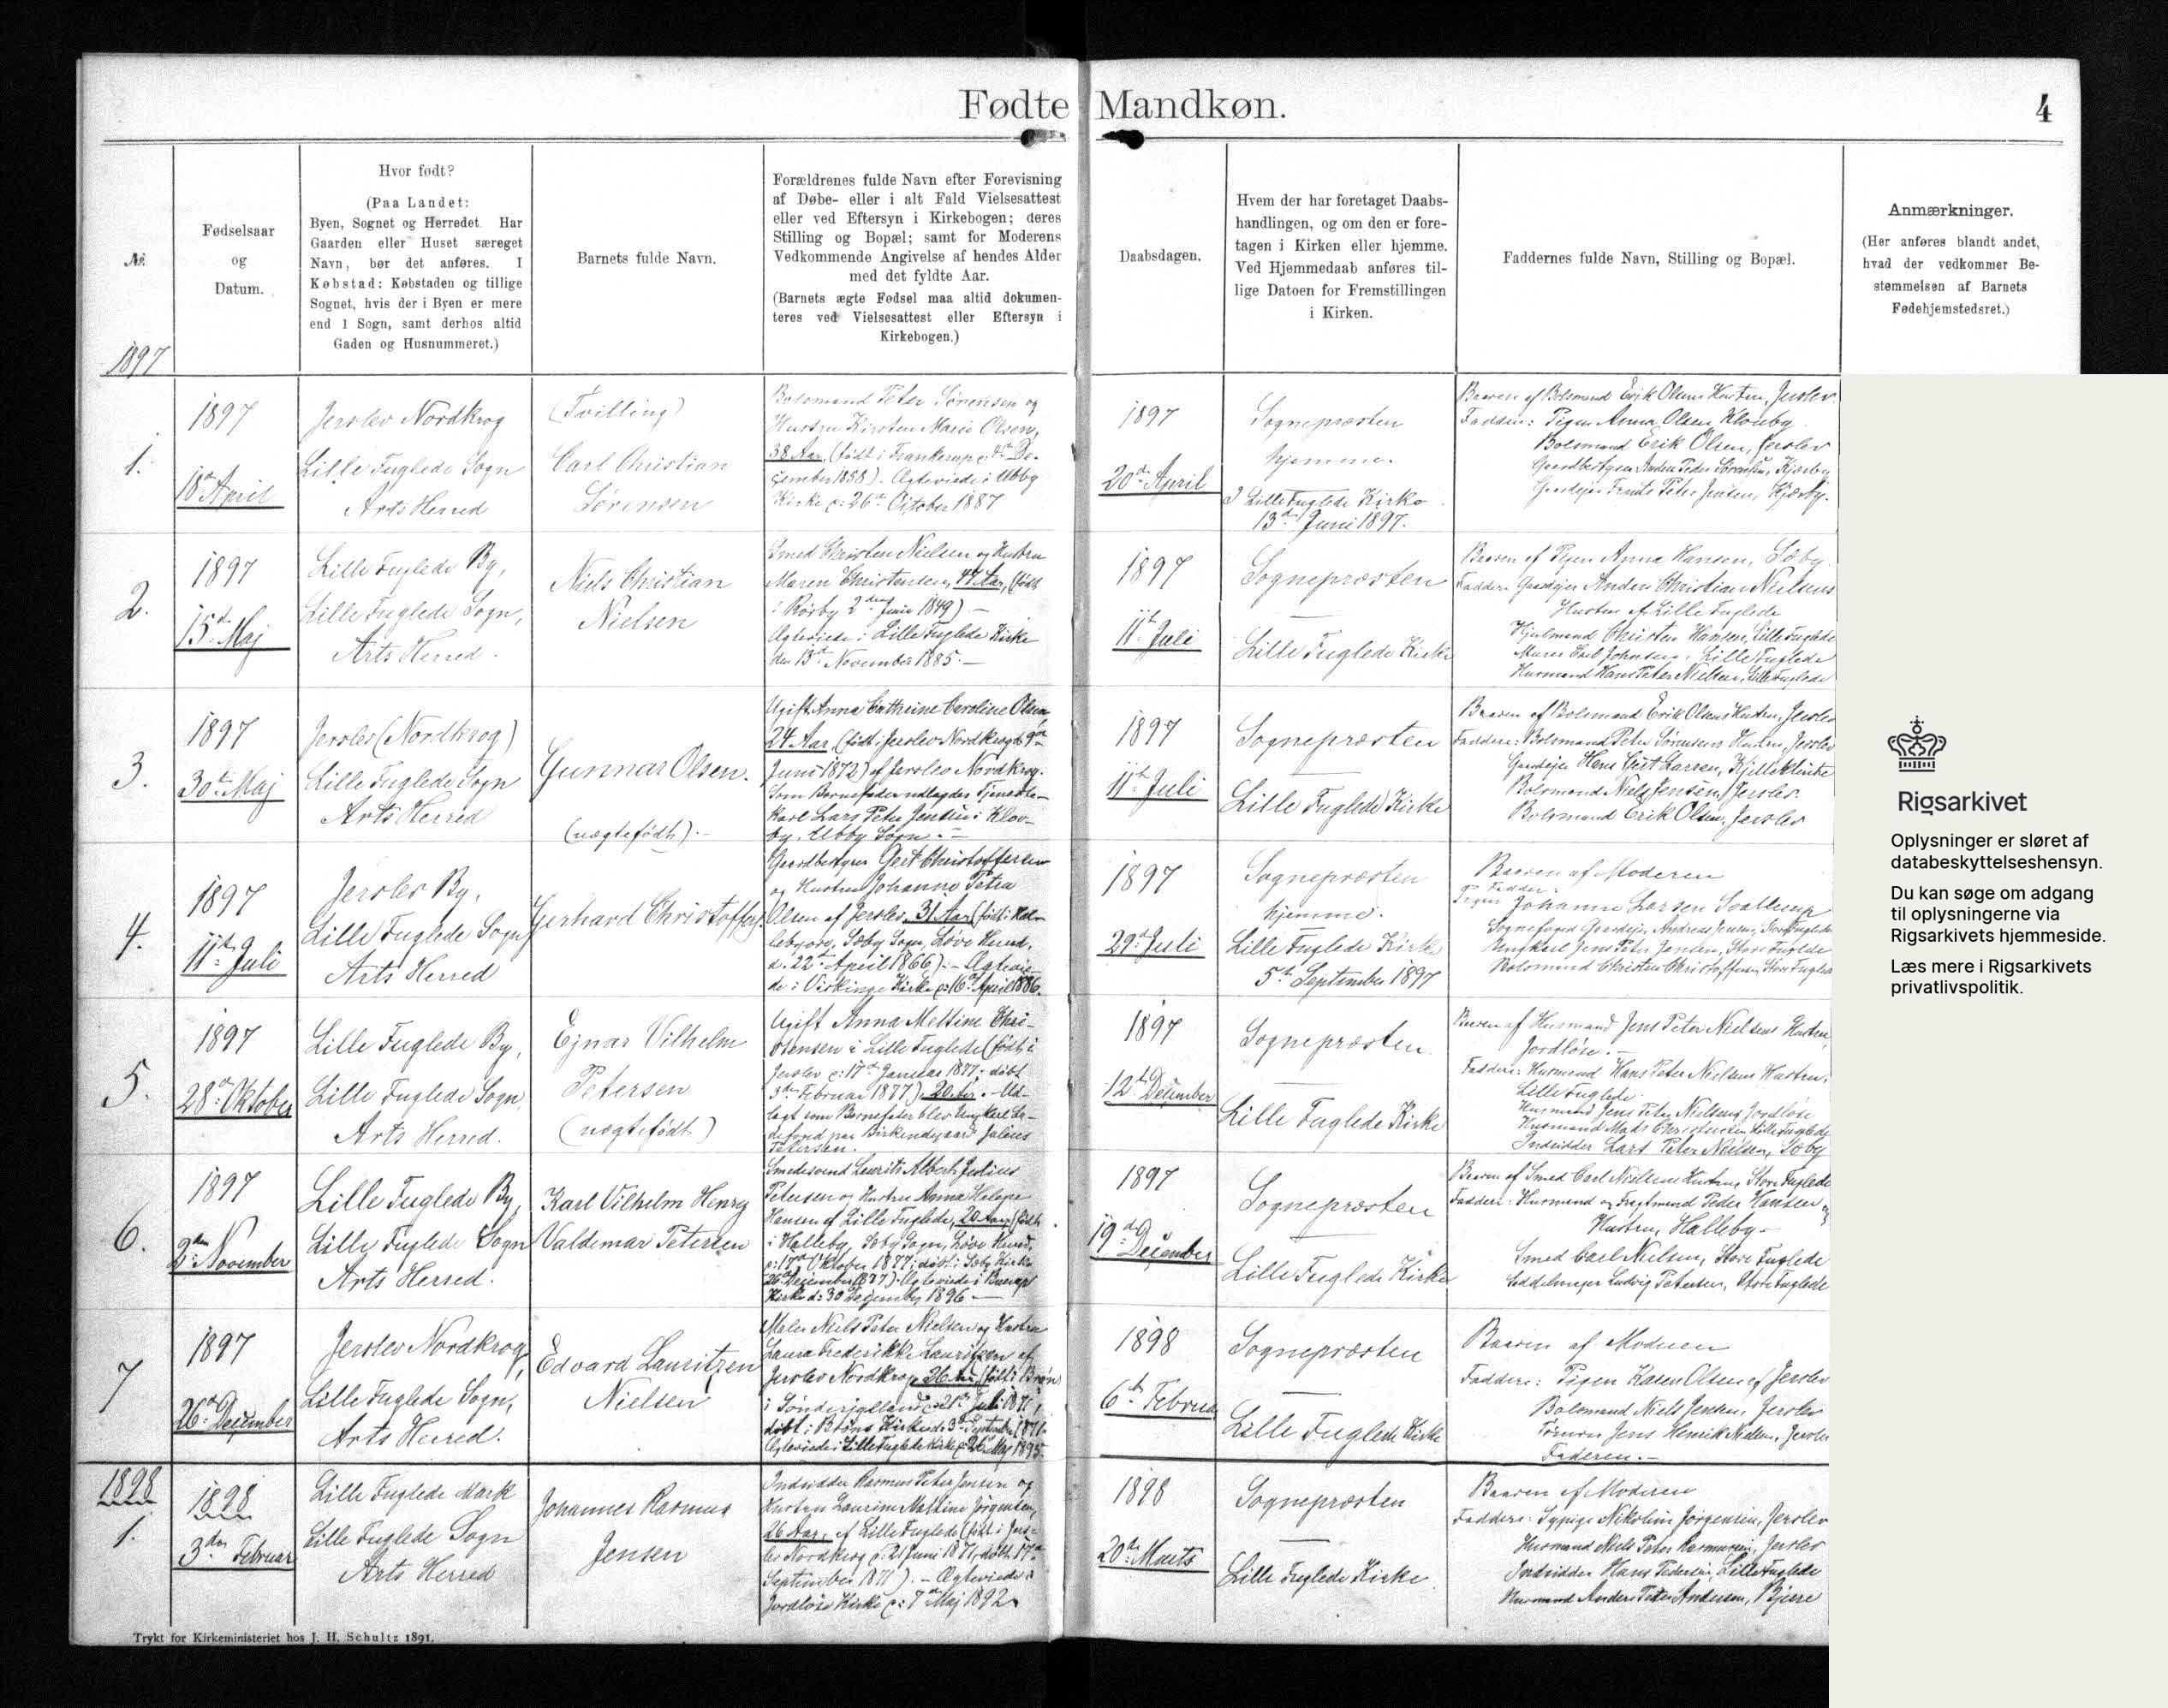 Fødte Mandkøn.
4
№
Fødselsaar
og
Datum.
Hvor født?
(Paa Landet:
Byen, Sognet og Herredet. Har
Gaarden eller Huset særeget
Navn, bør det anføres. I
Købstad: Købstaden og tillige
Sognet, hvis der i Byen er mere
end 1 Sogn, samt derhos altid
Gaden og Husnummeret.)
Barnets fulde Navn.
Forældrenes fulde Navn efter Forevisning
af Døbe- eller i alt Fald Vielsesattest
eller ved Eftersyn i Kirkebogen; deres
Stilling og Bopæl; samt for Moderens
Vedkommende Angivelse af hendes Alder
med det fyldte Aar.
(Barnets ægte Fødsel maa altid dokumen-
teres ved Vielsesattest eller Eftersyn i
Kirkebogen.)
Daabsdagen.
Hvem der har foretaget Daabs-
handlingen, og om den er fore-
tagen i Kirken eller hjemme.
Ved Hjemmedaab anføres til-
lige Datoen for Fremstillingen
i Kirken.
Faddernes fulde Navn, Stilling og Bopæl.
Anmærkninger.
(Her anføres blandt andet,
hvad der vedkommer Be-
stemmelsen af Barnets
Fødehjemstedsret.)
1897
1.
1897
18de April
Jerslev Nordkrog
Lille Fuglede Sogn
Arts Herred
(Tvilling)
Carl Christian
Sørensen
Bolsmand Peter Sørensen og
Hustru Kirsten Marie Olsen,
38 Aar, (født i Frankerup
cember 1858). Ægteviede i Ubby
Kirke d: 26de October 1887
1897
20de April
Sognepræsten
hjemme.
I Lille Fuglede Kirke
13de Juni 1897.
Baaren af Bolsmand Erik Olsens Hustru, Jerslev.
Faddere: Pigen Anna Olsen, Klovby.
Bolsmand Erik Olsen, Jerslev
Gaardbestyrer Anders Peder Sørensen, Kjærby
Gaardejer Frants Peter Jensen, Kjærby.
2.
1897
15de Maj
Lille Fuglede By,
Lille Fuglede Sogn,
Arts Herred.
Niels Christian
Nielsen
Smed Christen Nielsen og Hustru
Maren Christensen, 47 Aar, (født
i Rørby 2den Juni 1849) —
Ægteviede i Lille Fuglede Kirke
den 13de November 1885. —
1897
11te Juli
Sognepræsten
Lille Fuglede Kirke
Baaren af Pigen Anna Hansen, Sæby.
Faddere: Gaardejer Anders Christian Nielsens
Hustru af Lille Fuglede
Hjulmand Christen Hansen, Lille Fuglede
Murer Carl Johnsen, Lille Fuglede
Husmand Hans Peter Nielsen, Lille Fuglede
3.
1897
30te Maj
Jerslev (Nordkrog)
Lille Fuglede Sogn
Arts Herred
Gunnar Olsen.
(uægtefødt). —
Ugift Anna Cathrine Caroline Olsen,
24 Aar, (født i Jerslev Nordkrog d. 9de
Juni 1872) af Jerslev Nordkrog.
Som Barnefader udlagdes Tjeneste-
karl Lars Peter Jensen i Klov-
by, Ubby Sogn. —
1897
11te Juli
Sognepræsten
Lille Fuglede Kirke
Baaren af Bolsmand Erik Olsens Hustru, Jerslev
Faddere: Bolsmand Peter Sørensens Hustru, Jerslev
Gaardejer Hans Gert Larsen, Kjelleklinte
Bolsmand Niels Jensen, Jerslev.
Bolsmand Erik Olsen, Jerslev
4.
1897
11te Juli
Jerslev By,
Lille Fuglede Sogn
Arts Herred
Gerhard Christoffersen
Gaardbestyrer Gert Christoffersen
og Hustru Johanne Petra
Olsen af Jerslev, 31 Aar (født i Hal-
lebyore, Sæby Sogn, Løve Herred,
d. 22de April 1866). — Ægtevie-
de i Viskinge Kirke d: 16de April 1886.
1897
29de Juli
Sognepræsten
hjemme.
Lille Fuglede Kirke
5te September 1897
Baaren af Moderen
Faddere:
Pigen Johanne Larsen Svallerup
Sognefoged Gaardejer Andreas Jensen, Store Fuglede
Ungkarl Jens Peter Jensen, Store Fuglede
Bolsmand Christen Christoffersen, Store Fuglede
5.
1897
28de Oktober
Lille Fuglede By,
Lille Fuglede Sogn
Arts Herred.
Ejnar Vilhelm
Petersen
(uægtefødt)
Ugift Anna Mettine Chri-
stensen i Lille Fuglede (født i
Jerslev d: 17de Januar 1877; døbt
3die Februar 1877), 20 Aar. Ud-
lagt som Barnefader blev Ungkarl
paa Birkendegaard Julius
Petersen.
1897
12te December
Sognepræsten
Lille Fuglede Kirke
Baaren af Husmand Jens Peter Nielsens Hustru,
Jordløse. —
Faddere: Husmand Hans Peter Nielsens Hustru,
Lille Fuglede.
Husmand Jens Peter Nielsen, Jordløse
Husmand Mads Christensen, Lille Fuglede
Indsidder Lars Peter Nielsen, Sæby
6.
1897
2den November
Lille Fuglede By,
Lille Fuglede Sogn
Arts Herred.
Karl Vilhelm Henry
Valdemar Petersen
Smedesvend Laurits Albert Julius
Petersen og Hustru Anna
Hansen af Lille Fuglede, 20 Aar, (født
i Halleby, Sæby Sogn, Løve Herred,
d: 17de Oktober 1877; døbt i Sæby Kirke
26de December 1877). Ægteviede i
Kirke d: 30 December 1896 —
1897
19de December
Sognepræsten
Lille Fuglede Kirke
Baaren af Smed Carl Nielsens Hustru, Store Fuglede
Faddere: Husmand og Fragtmand Peder Hansen og
Hustru, Halleby —
Smed Carl Nielsen, Store Fuglede
Ludvig Petersen, Store Fuglede
7
1897
26de December
Jerslev Nordkrog,
Lille Fuglede Sogn,
Arts Herred.
Edvard Lauritzen
Nielsen
Maler Niels Peter Nielsen og Hustru
Laura Frederikke Lauritzen af
Jerslev Nordkrog, 26 Aar, (født i Brøns
i Sønderjylland d: 21de Juli 1871,
døbt i Brøns Kirke d: 3de September 1871.
Ægteviede i Lille Fuglede Kirke d: 26de Maj 1895.
1898
6te Februar
Sognepræsten
Lille Fuglede Kirke
Baaren af Moderen
Faddere: Pigen Karen Olsen af Jerslev
Bolsmand Niels Jensen, Jerslev
Jens Henrik Nielsen, Jerslev
Faderen. —
1898
1.
1898
3den Februar
Lille Fuglede Mark
Lille Fuglede Sogn
Arts Herred
Johannes Rasmus
Jensen
Indsidder Rasmus Peter Jensen og
Hustru Laurine Mettine Jørgensen,
26 Aar, af Lille Fuglede (født i Jers-
lev Nordkrog d: 21 Juni 1871, døbt 17de
September 1871). — Ægteviede i
Jordløse Kirke d: 7de Maj 1892.
1898
20de Marts
Sognepræsten
Lille Fuglede Kirke.
Baaren af Moderen
Faddere: Sypige Nikoline Jørgensen, Jerslev
Husmand Niels Peter Rasmussen, Jerslev
Indsidder Hans Pedersen, Lille Fuglede
Husmand Anders Peter Andersen, Bjerre
Trykt for Kirkeministeriet hos J. H. Schultz 1891.
Rigsarkivet
Oplysninger er sløret af
databeskyttelseshensyn.
Du kan søge om adgang
til oplysningerne via
Rigsarkivets hjemmeside.
Læs mere i Rigsarkivets
privatlivspolitik.